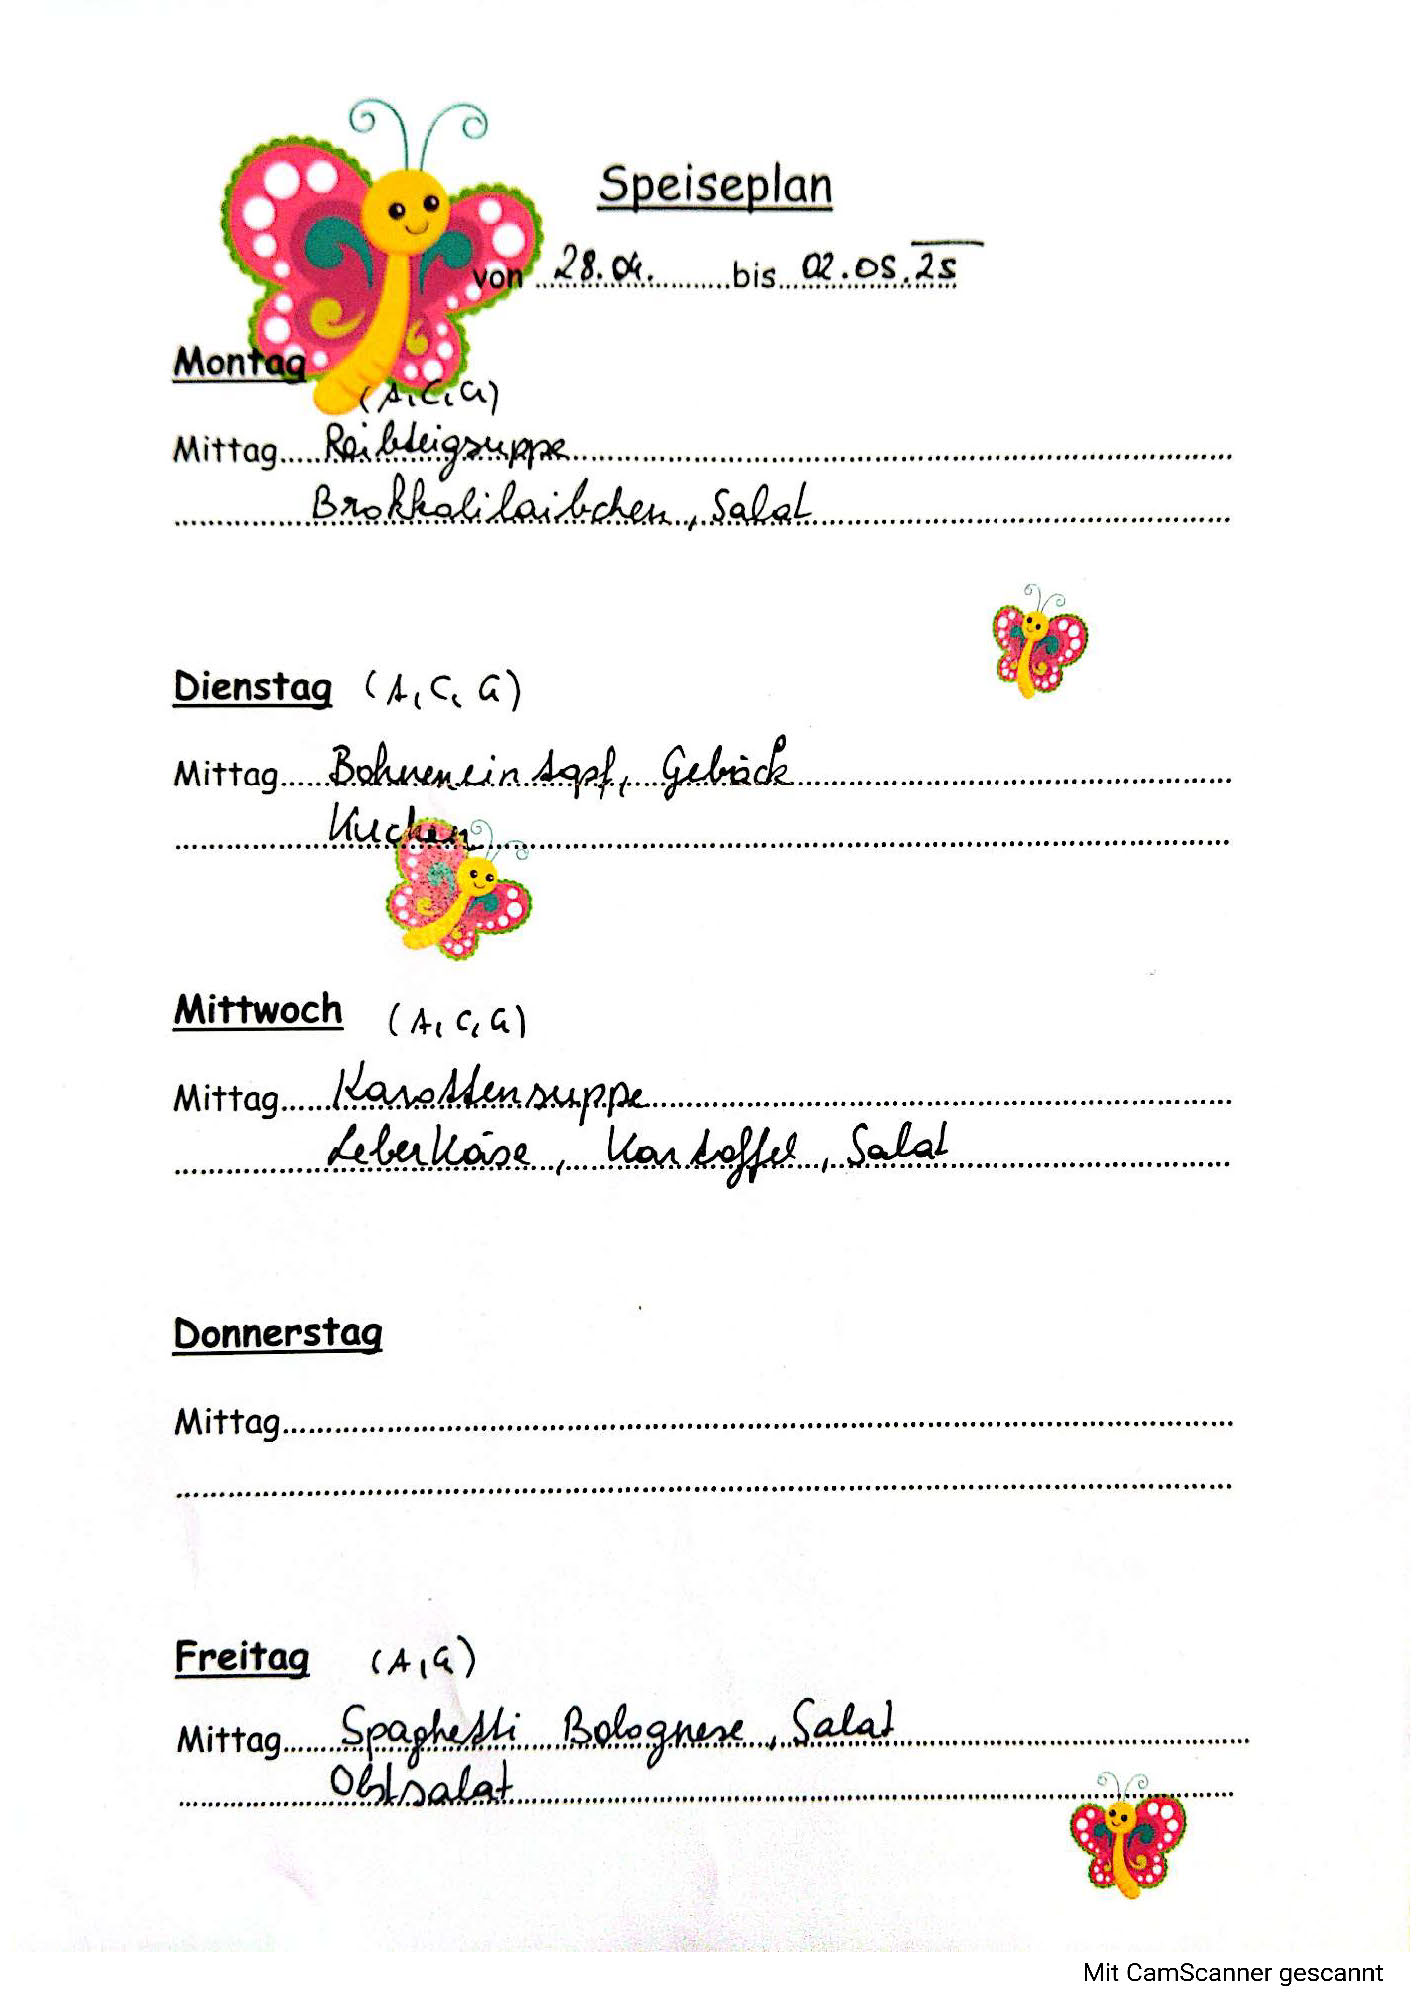 Speiseplan
von 28.04. bis 02.05.25
Montag
(A, C, G)
Mittag Reibteigsuppe
Brokkolilaibchen, Salat
Dienstag (A, C, G)
Mittag Bohneneintopf, Gebäck
Kuchen
Mittwoch (A, C, G)
Mittag Karottensuppe
Leberkäse, Kartoffel, Salat
Donnerstag
Mittag
Freitag (A, G)
Mittag Spaghetti Bolognese, Salat
Obstsalat
Mit CamScanner gescannt